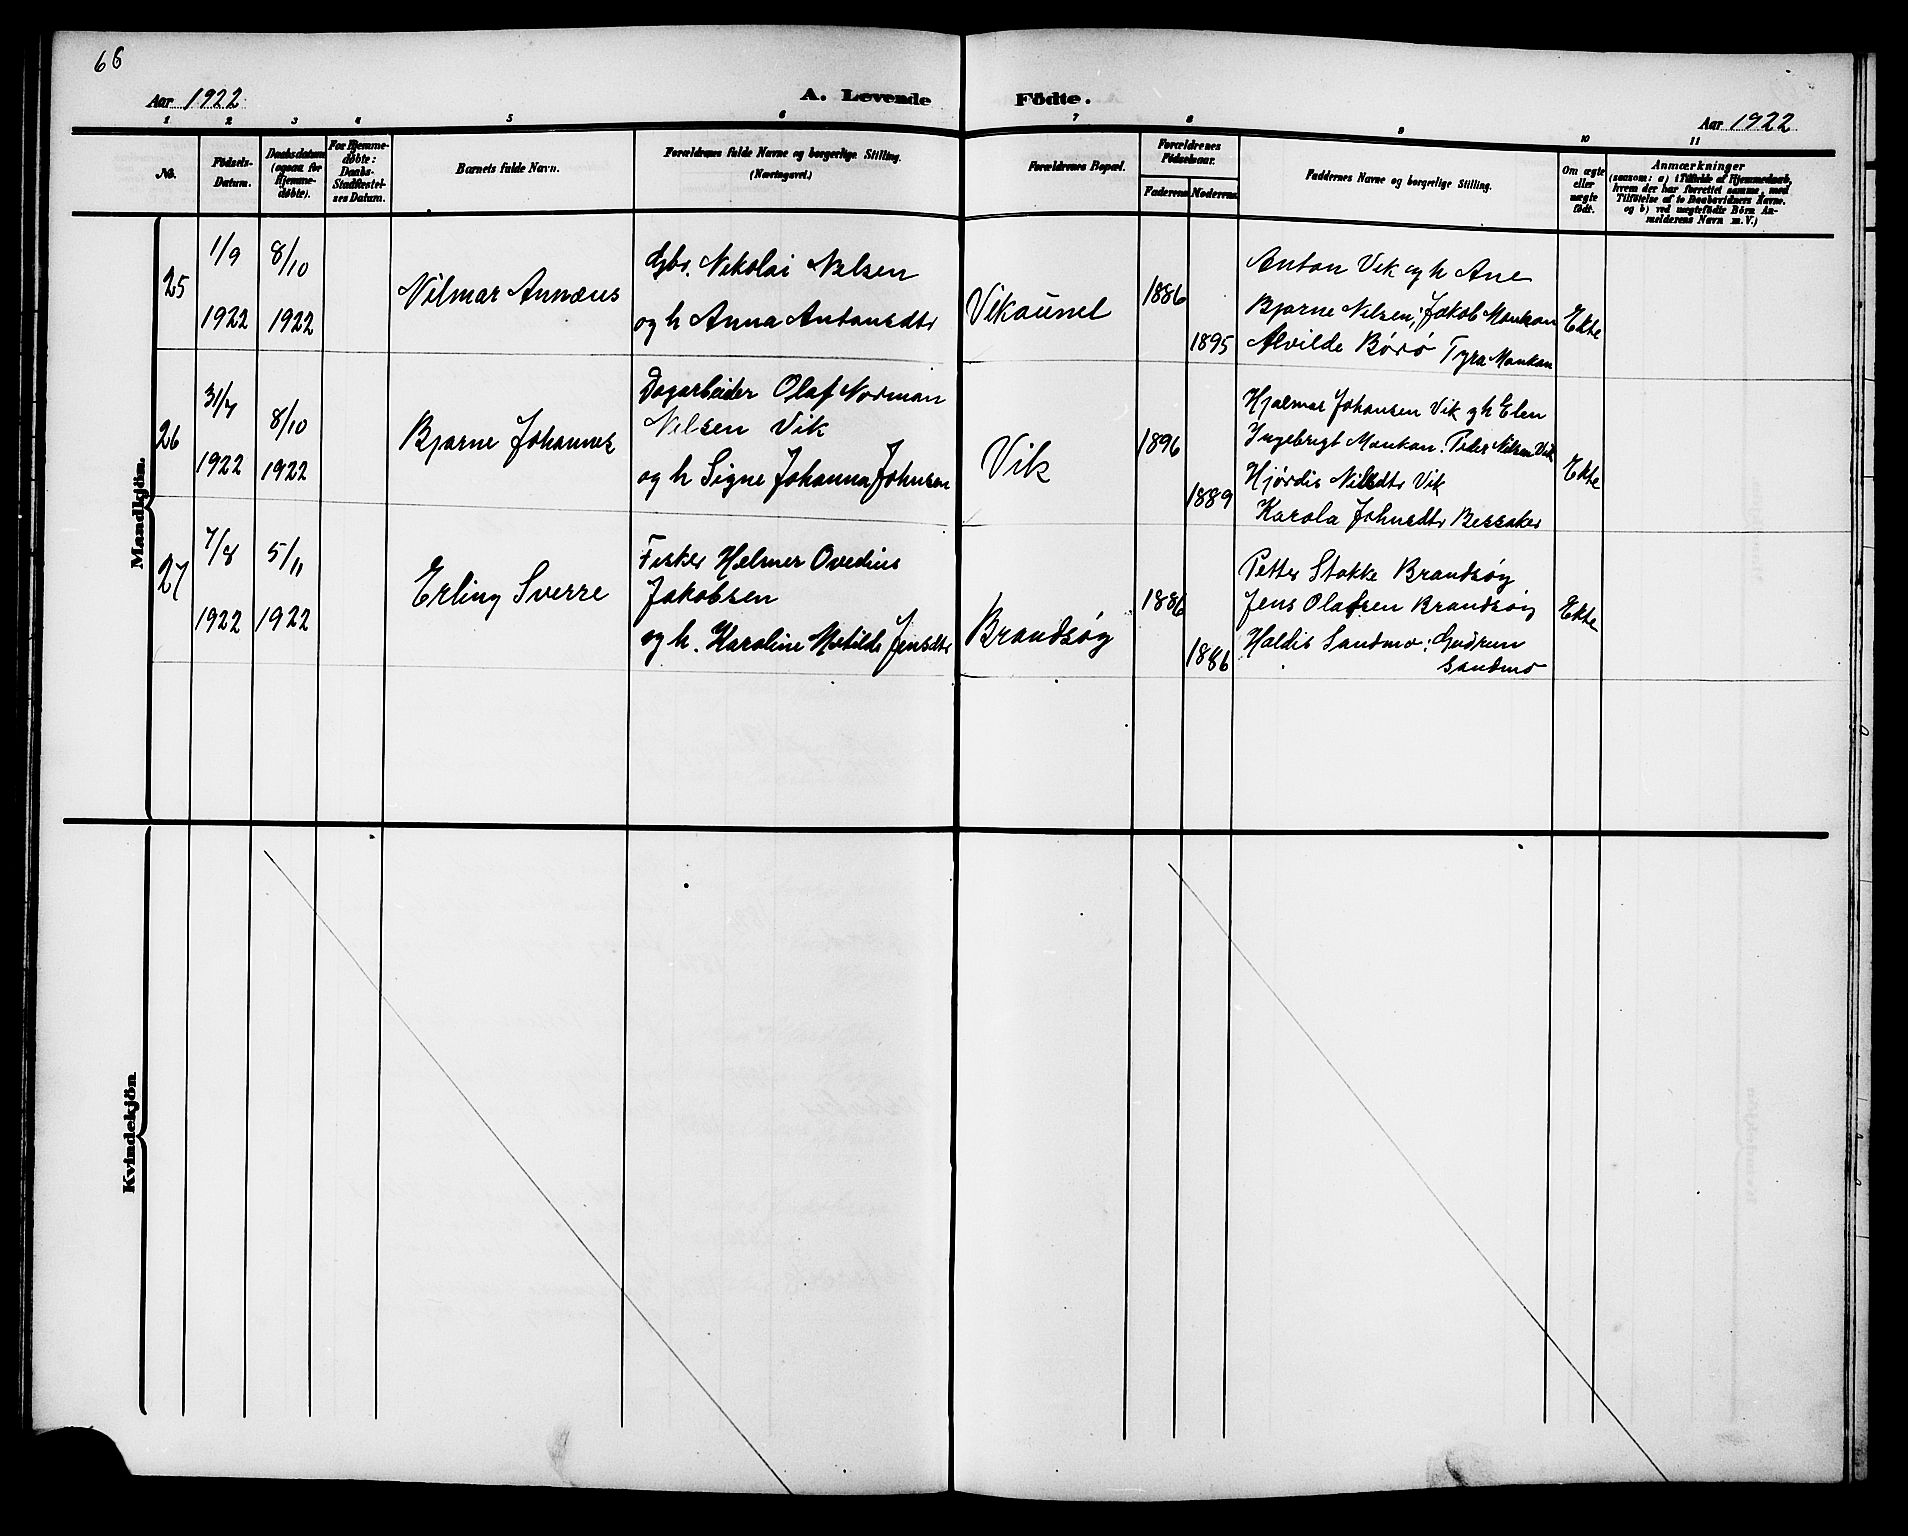 66
Aar 1922
A. Levende Födte.
Aar 1922
1 2 3 4 5 6 7 8 9 10 11
No.
Födsels-
Datum.
Daabsdatum
(ogsaa for
Hjemme-
döbte).
For Hjemme-
döbte:
Daabs-
Stadfæstel-
ses Datum.
Barnets fulde Navn.
Forældrenes fulde Navne og borgerlige Stilling.
(Næringsvei.)
Forældrenes Bopæl.
Forældrenes
Födselsaar.
Faderens
Moderens
Faddernes Navne og borgerlige Stilling.
Om ægte
eller
uægte
født.
Anmærkninger
(saasom: a) i Tilfælde af Hjemmedaab,
hvem der har forrettet samme, med
Tilföielse af to Daabsvidners Navne.
og b) ved uægtefödte Börn An-
melderens Navn m. V.)
Mandkjön.
25
1/9
1922
8/10
1922
Vilmar Annæus
Gbr. Nikolai Nelsen
og h Anna Antonsdtr
Vikaunet
1886
1895
Anton Vik og h Ane
Bjarne Nelsen; Jakob Monkan
Alvilde Børø Tyra Monkan
Ekte
26
31/7
1922
8/10
1922
Bjarne Johannes
Dagarbeider Olaf Norman
Nelsen Vik
og h Signe Johanna Johnsen
Vik
1896
1889
Hjalmar Johansen Vik og h Elen
Ingebrigt Monkan. Peder Nilsen Vik
Hjørdis Nilsdtr Vik
Karola Johnsdtr Bessaker
Ekte
27
7/8
1922
5/11
1922
Erling Sverre
Fisker Helmer Ovedius
Jakobsen
og h. Karoline Matilde Jensdtr
Brandsøy
1886
1886
Petter Stokke Brandsøy
Jens Olafsen Brandsøy
Haldis Sandmo; Gudrun
Sandmo
Ekte
Kvindekjön